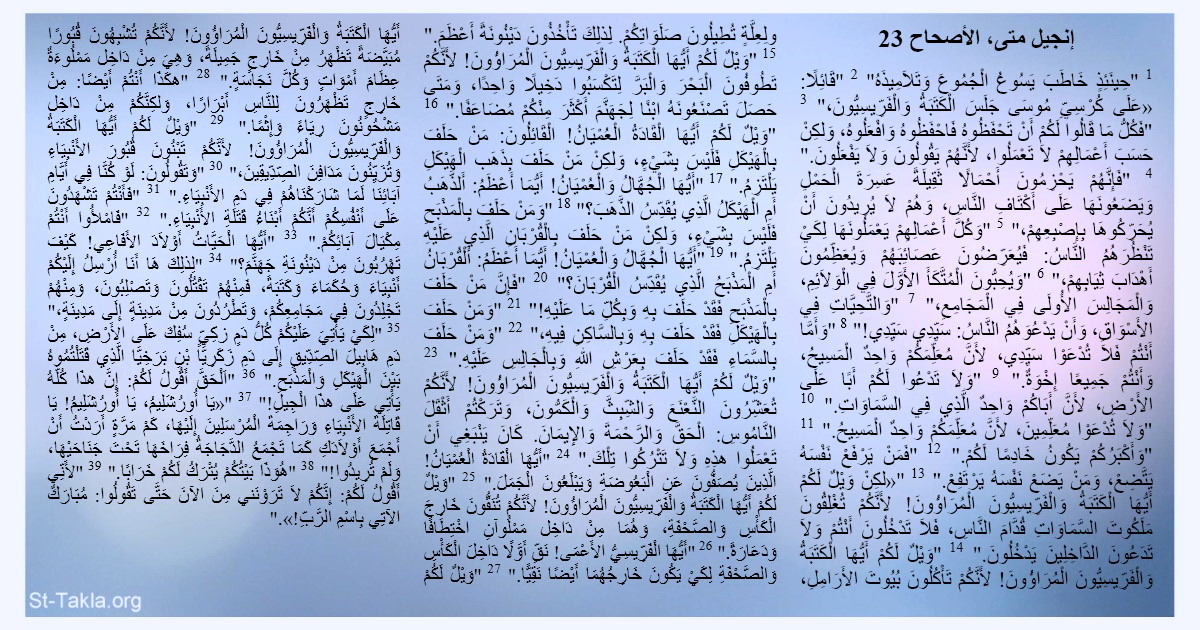 إنجيل متى، الأصحاح 23
1 "حِينَئِذٍ خَاطَبَ يَسُوعُ الْجُمُوعَ وَتَلاَمِيذَهُ" 2 "قَائِلًا:
«عَلَى كُرْسِيِّ مُوسَى جَلَسَ الْكَتَبَةُ وَالْفَرِّيسِيُّونَ،" 3
"فَكُلُّ مَا قَالُوا لَكُمْ أَنْ تَحْفَظُوهُ فَاحْفَظُوهُ وَافْعَلُوهُ، وَلكِنْ
حَسَبَ أَعْمَالِهِمْ لاَ تَعْمَلُوا، لأَنَّهُمْ يَقُولُونَ وَلاَ يَفْعَلُونَ."
4 "فَإِنَّهُمْ يَحْزِمُونَ أَحْمَالًا ثَقِيلَةً عَسِرَةَ الْحَمْلِ
وَيَضَعُونَهَا عَلَى أَكْتَافِ النَّاسِ، وَهُمْ لاَ يُرِيدُونَ أَنْ
يُحَرِّكُوهَا بِإِصْبِعِهِمْ،" 5 "وَكُلَّ أَعْمَالِهِمْ يَعْمَلُونَهَا لِكَيْ
تَنْظُرَهُمُ النَّاسُ: فَيُعَرِّضُونَ عَصَائِبَهُمْ وَيُعَظِّمُونَ
أَهْدَابَ ثِيَابِهِمْ،" 6 "وَيُحِبُّونَ الْمُتَّكَأَ الأَوَّلَ فِي الْوَلاَئِمِ،
وَالْمَجَالِسَ الأُولَى فِي الْمَجَامِعِ،" 7 "وَالتَّحِيَّاتِ فِي
الأَسْوَاقِ، وَأَنْ يَدْعُوَهُمُ النَّاسُ: سَيِّدِي سَيِّدِي!" 8 "وَأَمَّا
أَنْتُمْ فَلاَ تُدْعَوْا سَيِّدِي، لأَنَّ مُعَلِّمَكُمْ وَاحِدٌ الْمَسِيحُ،
وَأَنْتُمْ جَمِيعًا إِخْوَةٌ." 9 "وَلاَ تَدْعُوا لَكُمْ أَبًا عَلَى
الأَرْضِ، لأَنَّ أَبَاكُمْ وَاحِدٌ الَّذِي فِي السَّمَاوَاتِ." 10
"وَلاَ تُدْعَوْا مُعَلِّمِينَ، لأَنَّ مُعَلِّمَكُمْ وَاحِدٌ الْمَسِيحُ." 11
"وَأَكْبَرُكُمْ يَكُونُ خَادِمًا لَكُمْ." 12 "فَمَنْ يَرْفَعْ نَفْسَهُ
يَتَّضِعْ، وَمَنْ يَضَعْ نَفْسَهُ يَرْتَفِعْ." 13 "«لكِنْ وَيْلٌ لَكُمْ
أَيُّهَا الْكَتَبَةُ وَالْفَرِّيسِيُّونَ الْمُرَاؤُونَ! لأَنَّكُمْ تُغْلِقُونَ
مَلَكُوتَ السَّمَاوَاتِ قُدَّامَ النَّاسِ، فَلاَ تَدْخُلُونَ أَنْتُمْ وَلاَ
تَدَعُونَ الدَّاخِلِينَ يَدْخُلُونَ." 14 "وَيْلٌ لَكُمْ أَيُّهَا الْكَتَبَةُ
وَالْفَرِّيسِيُّونَ الْمُرَاؤُونَ! لأَنَّكُمْ تَأْكُلُونَ بُيُوتَ الأَرَامِلِ،
ولِعِلَّةٍ تُطِيلُونَ صَلَوَاتِكُمْ. لِذلِكَ تَأْخُذُونَ دَيْنُونَةً أَعْظَمَ."
15 "وَيْلٌ لَكُمْ أَيُّهَا الْكَتَبَةُ وَالْفَرِّيسِيُّونَ الْمُرَاؤُونَ! لأَنَّكُمْ
تَطُوفُونَ الْبَحْرَ وَالْبَرَّ لِتَكْسَبُوا دَخِيلًا وَاحِدًا، وَمَتَى
حَصَلَ تَصْنَعُونَهُ ابْنًا لِجَهَنَّمَ أَكْثَرَ مِنْكُمْ مُضَاعَفًا." 16
"وَيْلٌ لَكُمْ أَيُّهَا الْقَادَةُ الْعُمْيَانُ! الْقَائِلُونَ: مَنْ حَلَفَ
بِالْهَيْكَلِ فَلَيْسَ بِشَيْءٍ، وَلكِنْ مَنْ حَلَفَ بِذَهَبِ الْهَيْكَلِ
يَلْتَزِمُ." 17 "أَيُّهَا الْجُهَّالُ وَالْعُمْيَانُ! أَيُّمَا أَعْظَمُ: أَلذَّهَبُ
أَمِ الْهَيْكَلُ الَّذِي يُقَدِّسُ الذَّهَبَ؟" 18 "وَمَنْ حَلَفَ بِالْمَذْبَحِ
فَلَيْسَ بِشَيْءٍ، وَلكِنْ مَنْ حَلَفَ بِالْقُرْبَانِ الَّذِي عَلَيْهِ
يَلْتَزِمُ." 19 "أَيُّهَا الْجُهَّالُ وَالْعُمْيَانُ! أَيُّمَا أَعْظَمُ: أَلْقُرْبَانُ
أَمِ الْمَذْبَحُ الَّذِي يُقَدِّسُ الْقُرْبَانَ؟" 20 "فَإِنَّ مَنْ حَلَفَ
بِالْمَذْبَحِ فَقَدْ حَلَفَ بِهِ وَبِكُلِّ مَا عَلَيْهِ!" 21 "وَمَنْ حَلَفَ
بِالْهَيْكَلِ فَقَدْ حَلَفَ بِهِ وَبِالسَّاكِنِ فِيهِ،" 22 "وَمَنْ حَلَفَ
بِالسَّمَاءِ فَقَدْ حَلَفَ بِعَرْشِ اللهِ وَبِالْجَالِسِ عَلَيْهِ." 23
"وَيْلٌ لَكُمْ أَيُّهَا الْكَتَبَةُ وَالْفَرِّيسِيُّونَ الْمُرَاؤُونَ! لأَنَّكُمْ
تُعَشِّرُونَ النَّعْنَعَ وَالشِّبِثَّ وَالْكَمُّونَ، وَتَرَكْتُمْ أَثْقَلَ
النَّامُوسِ: الْحَقَّ وَالرَّحْمَةَ وَالإِيمَانَ. كَانَ يَنْبَغِي أَنْ
تَعْمَلُوا هذِهِ وَلاَ تَتْرُكُوا تِلْكَ." 24 "أَيُّهَا الْقَادَةُ الْعُمْيَانُ!
الَّذِينَ يُصَفُّونَ عَنِ الْبَعُوضَةِ وَيَبْلَعُونَ الْجَمَلَ." 25 "وَيْلٌ
لَكُمْ أَيُّهَا الْكَتَبَةُ وَالْفَرِّيسِيُّونَ الْمُرَاؤُونَ! لأَنَّكُمْ تُنَقُّونَ خَارِجَ
الْكَأْسِ وَالصَّحْفَةِ، وَهُمَا مِنْ دَاخِل مَمْلُوآنِ اخْتِطَافًا
وَدَعَارَةً." 26 "أَيُّهَا الْفَرِّيسِيُّ الأَعْمَى! نَقِّ أَوَّلًا دَاخِلَ الْكَأْسِ
وَالصَّحْفَةِ لِكَيْ يَكُونَ خَارِجُهُمَا أَيْضًا نَقِيًّا." 27 "وَيْلٌ لَكُمْ
أَيُّهَا الْكَتَبَةُ وَالْفَرِّيسِيُّونَ الْمُرَاؤُونَ! لأَنَّكُمْ تُشْبِهُونَ قُبُورًا
مُبَيَّضَةً تَظْهَرُ مِنْ خَارِجٍ جَمِيلَةً، وَهِيَ مِنْ دَاخِل مَمْلُوءَةٌ
عِظَامَ أَمْوَاتٍ وَكُلَّ نَجَاسَةٍ." 28 "هكَذَا أَنْتُمْ أَيْضًا: مِنْ
خَارِجٍ تَظْهَرُونَ لِلنَّاسِ أَبْرَارًا، وَلكِنَّكُمْ مِنْ دَاخِل
مَشْحُونُونَ رِيَاءً وَإِثْمًا." 29 "وَيْلٌ لَكُمْ أَيُّهَا الْكَتَبَةُ
وَالْفَرِّيسِيُّونَ الْمُرَاؤُونَ! لأَنَّكُمْ تَبْنُونَ قُبُورَ الأَنْبِيَاءِ
وَتُزَيِّنُونَ مَدَافِنَ الصِّدِّيقِينَ،" 30 "وَتَقُولُونَ: لَوْ كُنَّا فِي أَيَّامِ
آبَائِنَا لَمَا شَارَكْنَاهُمْ فِي دَمِ الأَنْبِيَاءِ." 31 "فَأَنْتُمْ تَشْهَدُونَ
عَلَى أَنْفُسِكُمْ أَنَّكُمْ أَبْنَاءُ قَتَلَةِ الأَنْبِيَاءِ." 32 "فَامْلأُوا أَنْتُمْ
مِكْيَالَ آبَائِكُمْ." 33 "أَيُّهَا الْحَيَّاتُ أَوْلاَدَ الأَفَاعِي! كَيْفَ
تَهْرُبُونَ مِنْ دَيْنُونَةِ جَهَنَّمَ؟" 34 "لِذلِكَ هَا أَنَا أُرْسِلُ إِلَيْكُمْ
أَنْبِيَاءَ وَحُكَمَاءَ وَكَتَبَةً، فَمِنْهُمْ تَقْتُلُونَ وَتَصْلِبُونَ، وَمِنْهُمْ
تَجْلِدُونَ فِي مَجَامِعِكُمْ، وَتَطْرُدُونَ مِنْ مَدِينَةٍ إِلَى مَدِينَةٍ،"
35 "لِكَيْ يَأْتِيَ عَلَيْكُمْ كُلُّ دَمٍ زكِيٍّ سُفِكَ عَلَى الأَرْضِ، مِنْ
دَمِ هَابِيلَ الصِّدِّيقِ إِلَى دَمِ زَكَرِيَّا بْنِ بَرَخِيَّا الَّذِي قَتَلْتُمُوهُ
بَيْنَ الْهَيْكَلِ وَالْمَذْبَحِ." 36 "اَلْحَقَّ أَقُولُ لَكُمْ: إِنَّ هذَا كُلَّهُ
يَأْتِي عَلَى هذَا الْجِيلِ!" 37 "«يَا أُورُشَلِيمُ، يَا أُورُشَلِيمُ! يَا
قَاتِلَةَ الأَنْبِيَاءِ وَرَاجِمَةَ الْمُرْسَلِينَ إِلَيْهَا، كَمْ مَرَّةٍ أَرَدْتُ أَنْ
أَجْمَعَ أَوْلاَدَكِ كَمَا تَجْمَعُ الدَّجَاجَةُ فِرَاخَهَا تَحْتَ جَنَاحَيْهَا،
وَلَمْ تُرِيدُوا!" 38 "هُوَذَا بَيْتُكُمْ يُتْرَكُ لَكُمْ خَرَابًا." 39 "لأَنِّي
أَقُولُ لَكُمْ: إِنَّكُمْ لاَ تَرَوْنَنِي مِنَ الآنَ حَتَّى تَقُولُوا: مُبَارَكٌ
الآتِي بِاسْمِ الرَّبِّ!»."
St-Takla.org